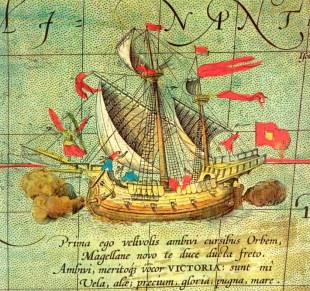 NANT
Prima ego velivolis ambivi cursibus Orbem,
Magellane novo te duce ducta freto.
Ambivi, meritoq; vocor VICTORIA: sunt mi
Vela, alæ; precium, gloria; pugna, mare.